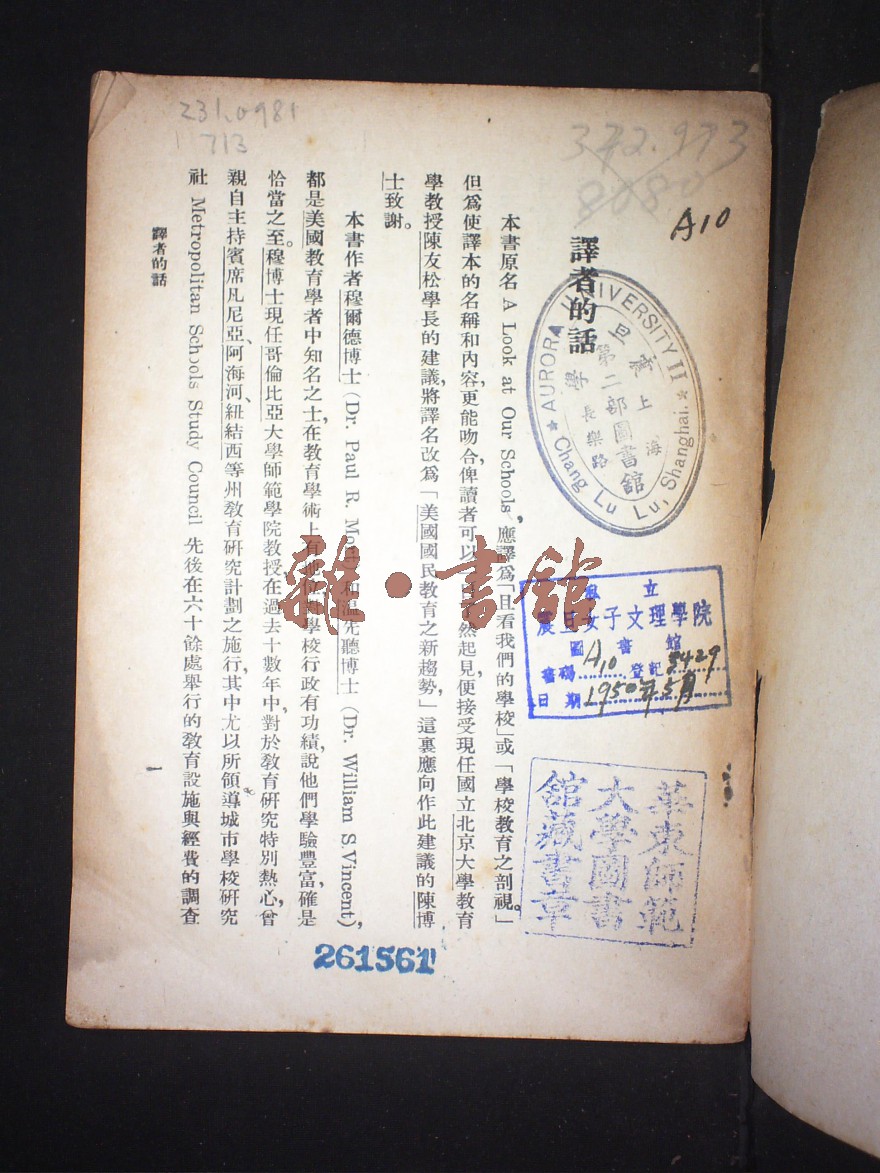 231.0981
713
372.973
8080
A10
譯者的話
本書原名 A Look at Our Schools, 應譯爲「且看我們的學校」或「學校教育之剖視。」
但爲使譯本的名稱和內容,更能吻合,俾讀者可以然起見,便接受現任國立北京大學教育
學教授陳友松學長的建議,將譯名改爲「美國國民教育之新趨勢,」這裏應向作此建議的陳博
士致謝。
本書作者穆爾德博士 (Dr. Paul R. M) 和溫先聽博士 (Dr. William S. Vincent),
都是美國教育學者中知名之士,在教育學術上有地位,對學校行政有功績,說他們學驗豐富,確是
恰當之至。穆博士現任哥倫比亞大學師範學院教授,在過去十數年中,對於教育研究特別熱心,曾
親自主持賓席凡尼亞、阿海河、紐結西等州教育研究計劃之施行,其中尤以所領導城市學校研究
社 Metropolitan Schools Study Council 先後在六十餘處舉行的教育設施與經費的調查
譯者的話
一
AURORA UNIVERSITY II
Chang Lu Lu, Shanghai.
上海
震旦
大學
第二部圖書館
長樂路
私立
震旦女子文理學院
圖書館
書碼 A10 登記 8429
日期 1950年5月
華東師範
大學圖書
館藏書章
261561
雜·書館